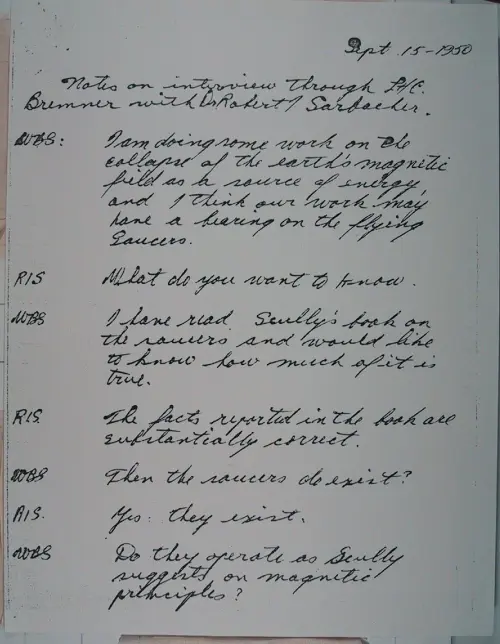 Sept. 15-1950
Notes on interview through L/C.
Bremner with Dr Robert I Sarbacher.
WBS: I am doing some work on the
collapse of the earth's magnetic
field as a source of energy,
and I think our work may
have a bearing on the flying
saucers.
RIS What do you want to know.
WBS I have read Scully's book on
the saucers and would like
to know how much of it is
true.
RIS. The facts reported in the book are
substantially correct.
WBS Then the saucers do exist?
RIS. Yes: they exist.
WBS Do they operate as Scully
suggests on magnetic
principles?